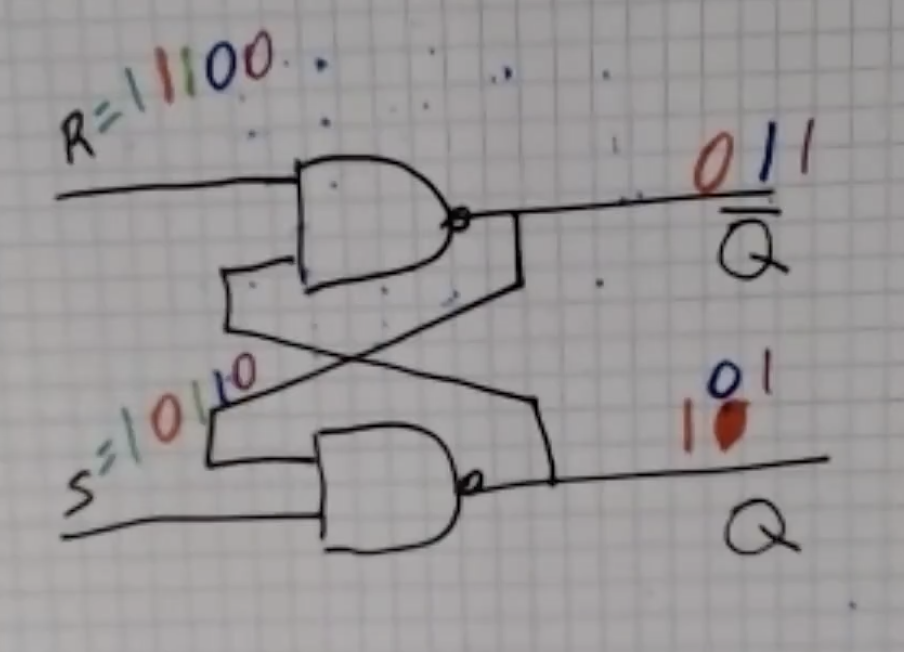 R=11100
011
Q̅
S=10110
01
1
Q